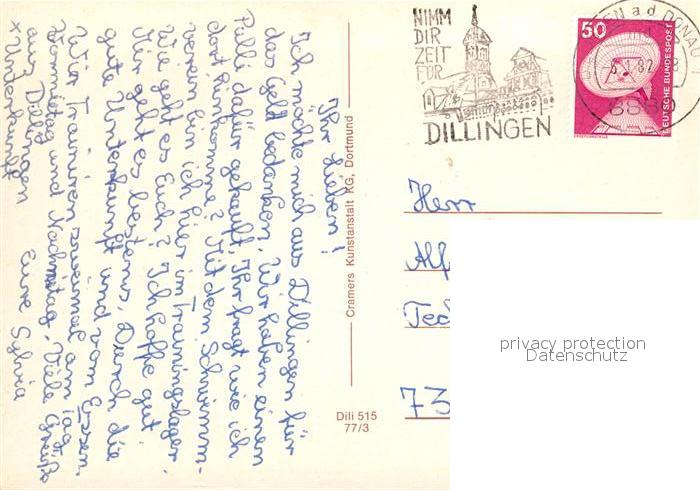 Ihr Lieben!
Ich möchte mich aus Dillingen für
das Geld bedanken, Wir haben einen
Pulli dafür gekauft, Ihr fragt wie ich
dort hinkomme? Mit dem Schwimm-
verein bin ich hier im Trainingslager.
Wie geht es Euch? Ich hoffe gut.
Mir geht es bestens, Durch die
gute Unterkunft und vom Essen.
Wir Trainiren zweimal am Tag
Vormietag und Nachmitag, Viele Grüße
aus Dillingen
Eure Sylvia
x Unterkunft
Cramers Kunstanstalt KG, Dortmund
Dili 515
77/3
NIMM
DIR
ZEIT
FÜR
DILLINGEN
EN a d DONAU
82
8880
50
DEUTSCHE BUNDESPOST
Herr
Alf
Tec
73
privacy protection
Datenschutz